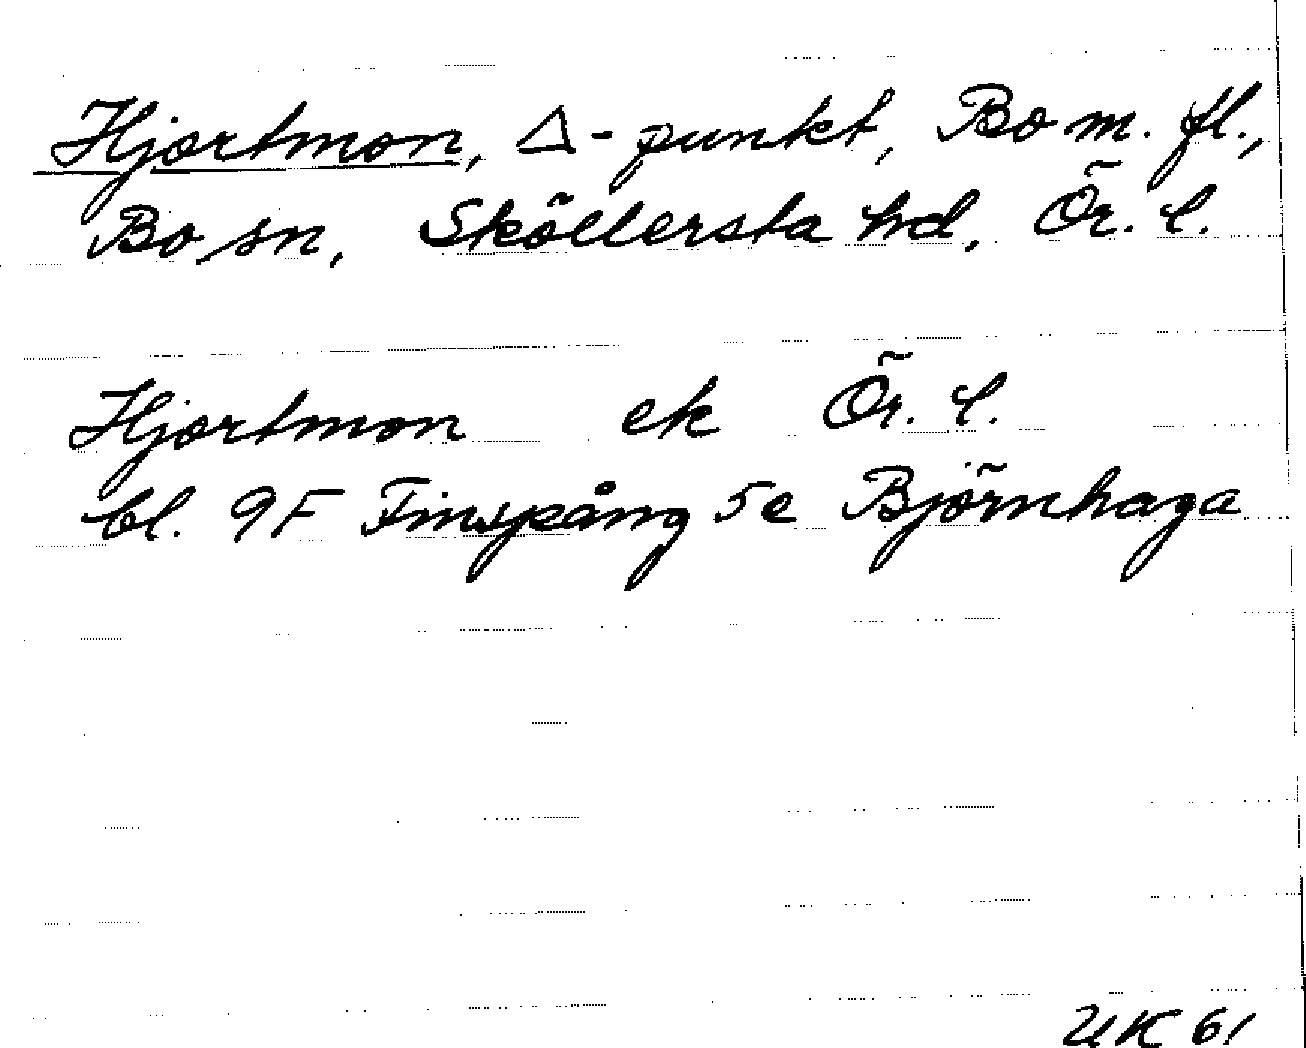 Hjortmon, Δ-punkt, Bo m. fl.,
Bo sn, Sköllersta hd, Ör. l.
Hjortmon ek Ör. l.
bl. 9F Finspång 5e Björnhaga
UK 61